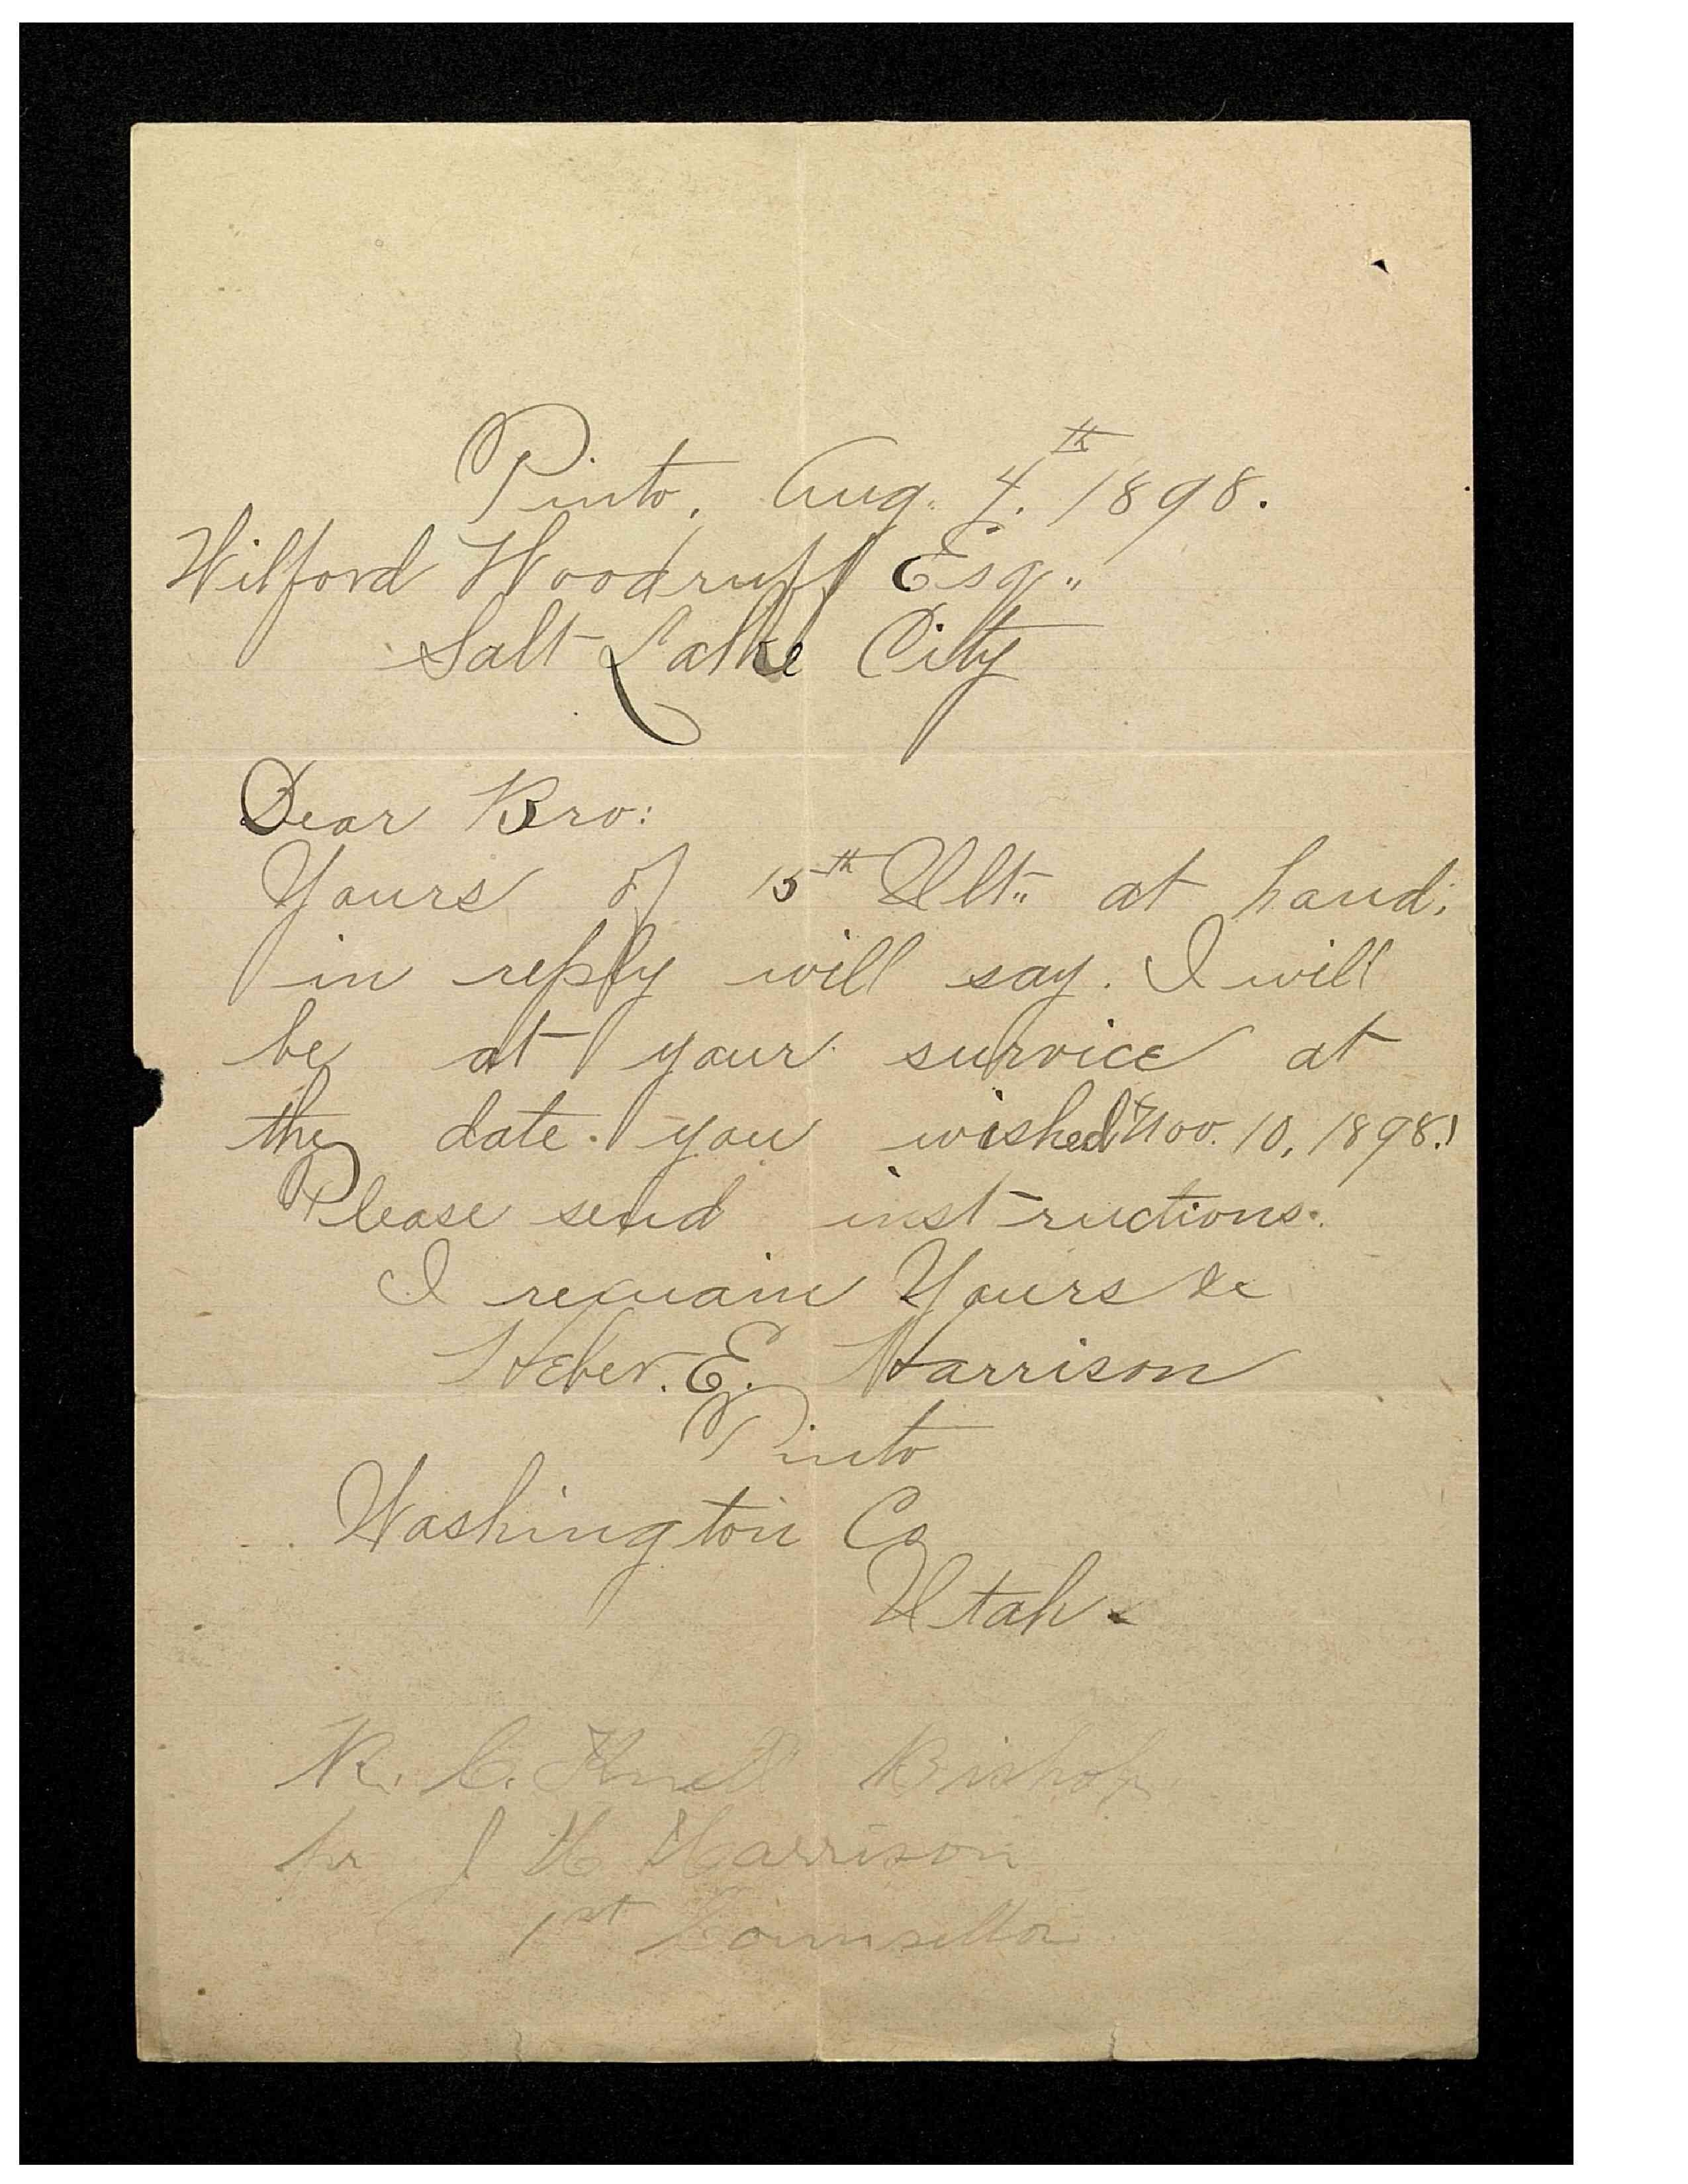 Pinto, Aug. 4.th 1898.
Wilford Woodruff Esq.,,
Salt Lake City
Dear Bro:
Yours of 15th Ult.,, at hand;
in reply will say. I will
be at your survice at
the date. you wished "Nov. 10, 1898."
Please send instructions.
I remain Yours &c
Heber. E. Harrison
Pinto
Washington Co
Utah.
R. C. Knell Bishop
pr J H Harrison
1st Counsellor